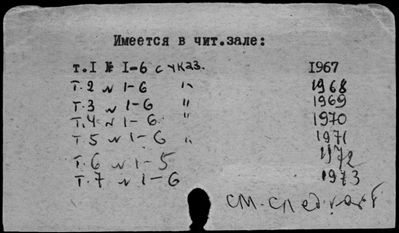 Имеется в чит.зале:
т.I № I-6 с указ. 1967
т.2 № 1-6 " 1968
т.3 № 1-6 " 1969
т.4 № 1-6 " 1970
т.5 № 1-6 " 1971
т.6 № 1-5 1972
т.7 № 1-6 1973
см. след. карт